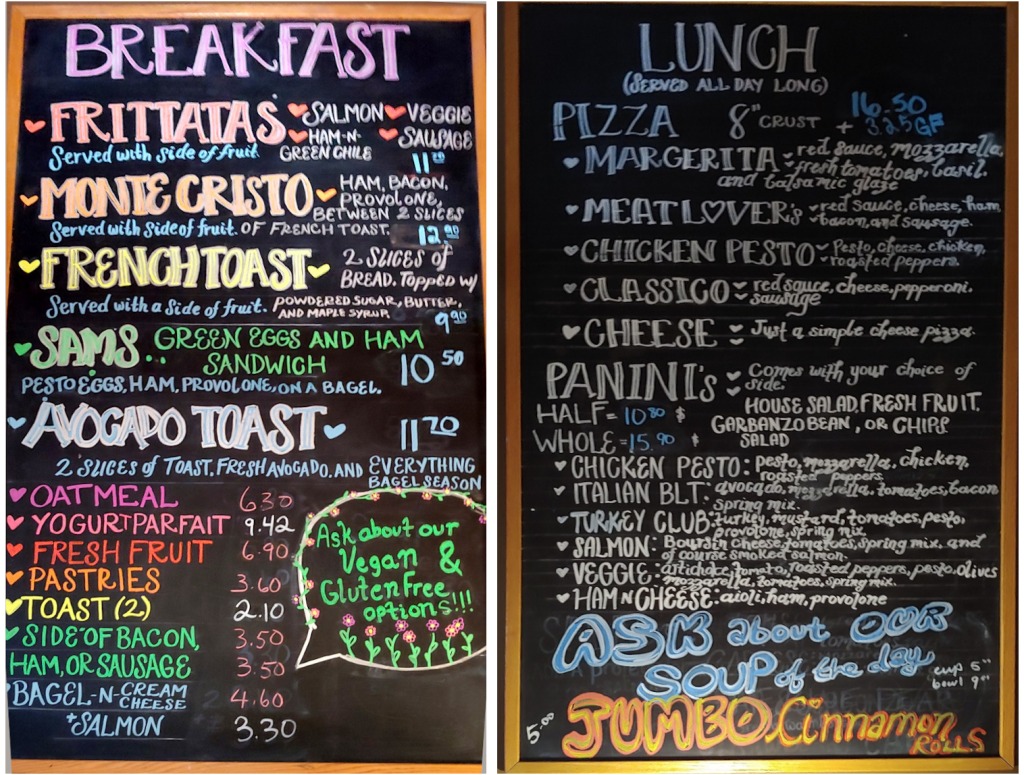 BREAKFAST
FRITTATAS SALMON VEGGIE
HAM-N-GREEN CHILE SAUSAGE
Served with side of fruit 11
MONTE CRISTO HAM, BACON,
PROVOLONE,
BETWEEN 2 SLICES
Served with side of fruit. OF FRENCH TOAST. 12.90
FRENCH TOAST 2 SLICES of
BREAD. Topped w/
Served with a side of fruit. POWDERED SUGAR, BUTTER,
AND MAPLE SYRUP. 9.90
SAMS.. GREEN EGGS AND HAM
SANDWICH 10 50
PESTO EGGS, HAM, PROVOLONE, ON A BAGEL.
AVOCADO TOAST 11 70
2 SLICES of TOAST, FRESH AVOCADO, AND EVERYTHING
BAGEL SEASON
OATMEAL 6.30
YOGURT PARFAIT 9.42
FRESH FRUIT 6.90
PASTRIES 3.60
TOAST (2) 2.10
SIDE OF BACON, 3.50
HAM, OR SAUSAGE 3.50
BAGEL-N-CREAM CHEESE 4.60
+SALMON 3.30
Ask about our
Vegan &
Gluten Free
options!!!
LUNCH
(SERVED ALL DAY LONG)
PIZZA 8" CRUST 16.50
+ 3.25 GF
MARGERITA - red sauce, mozzarella,
fresh tomatoes, basil
and balsamic glaze
MEAT LOVER's - red sauce, cheese, ham
bacon, and sausage.
CHICKEN PESTO - Pesto, cheese, chicken,
roasted peppers.
CLASSICO - red sauce, cheese, pepperoni.
sausage
CHEESE - Just a simple cheese pizza.
PANINI's - Comes with your choice of
side.
HALF = 10 80 $ HOUSE SALAD, FRESH FRUIT,
WHOLE = 15.90 $ GARBANZO BEAN, OR CHIPS
SALAD
CHICKEN PESTO: pesto, mozzarella, chicken,
roasted peppers
ITALIAN BLT: avocado, mozzarella, tomatoes, bacon
spring mix.
TURKEY CLUB: turkey, mustard, tomatoes, pesto,
provolone, spring mix
SALMON: Boursin cheese, tomatoes, spring mix, and
of course smoked salmon.
VEGGIE: artichoke, tomato, roasted peppers, pesto, olives
mozzarella, tomatoes, spring mix.
HAM N CHEESE: aioli, ham, provolone
ASK about OUR
SOUP of the day cup 5"
bowl 9"
5.00 JUMBO Cinnamon
ROLLS